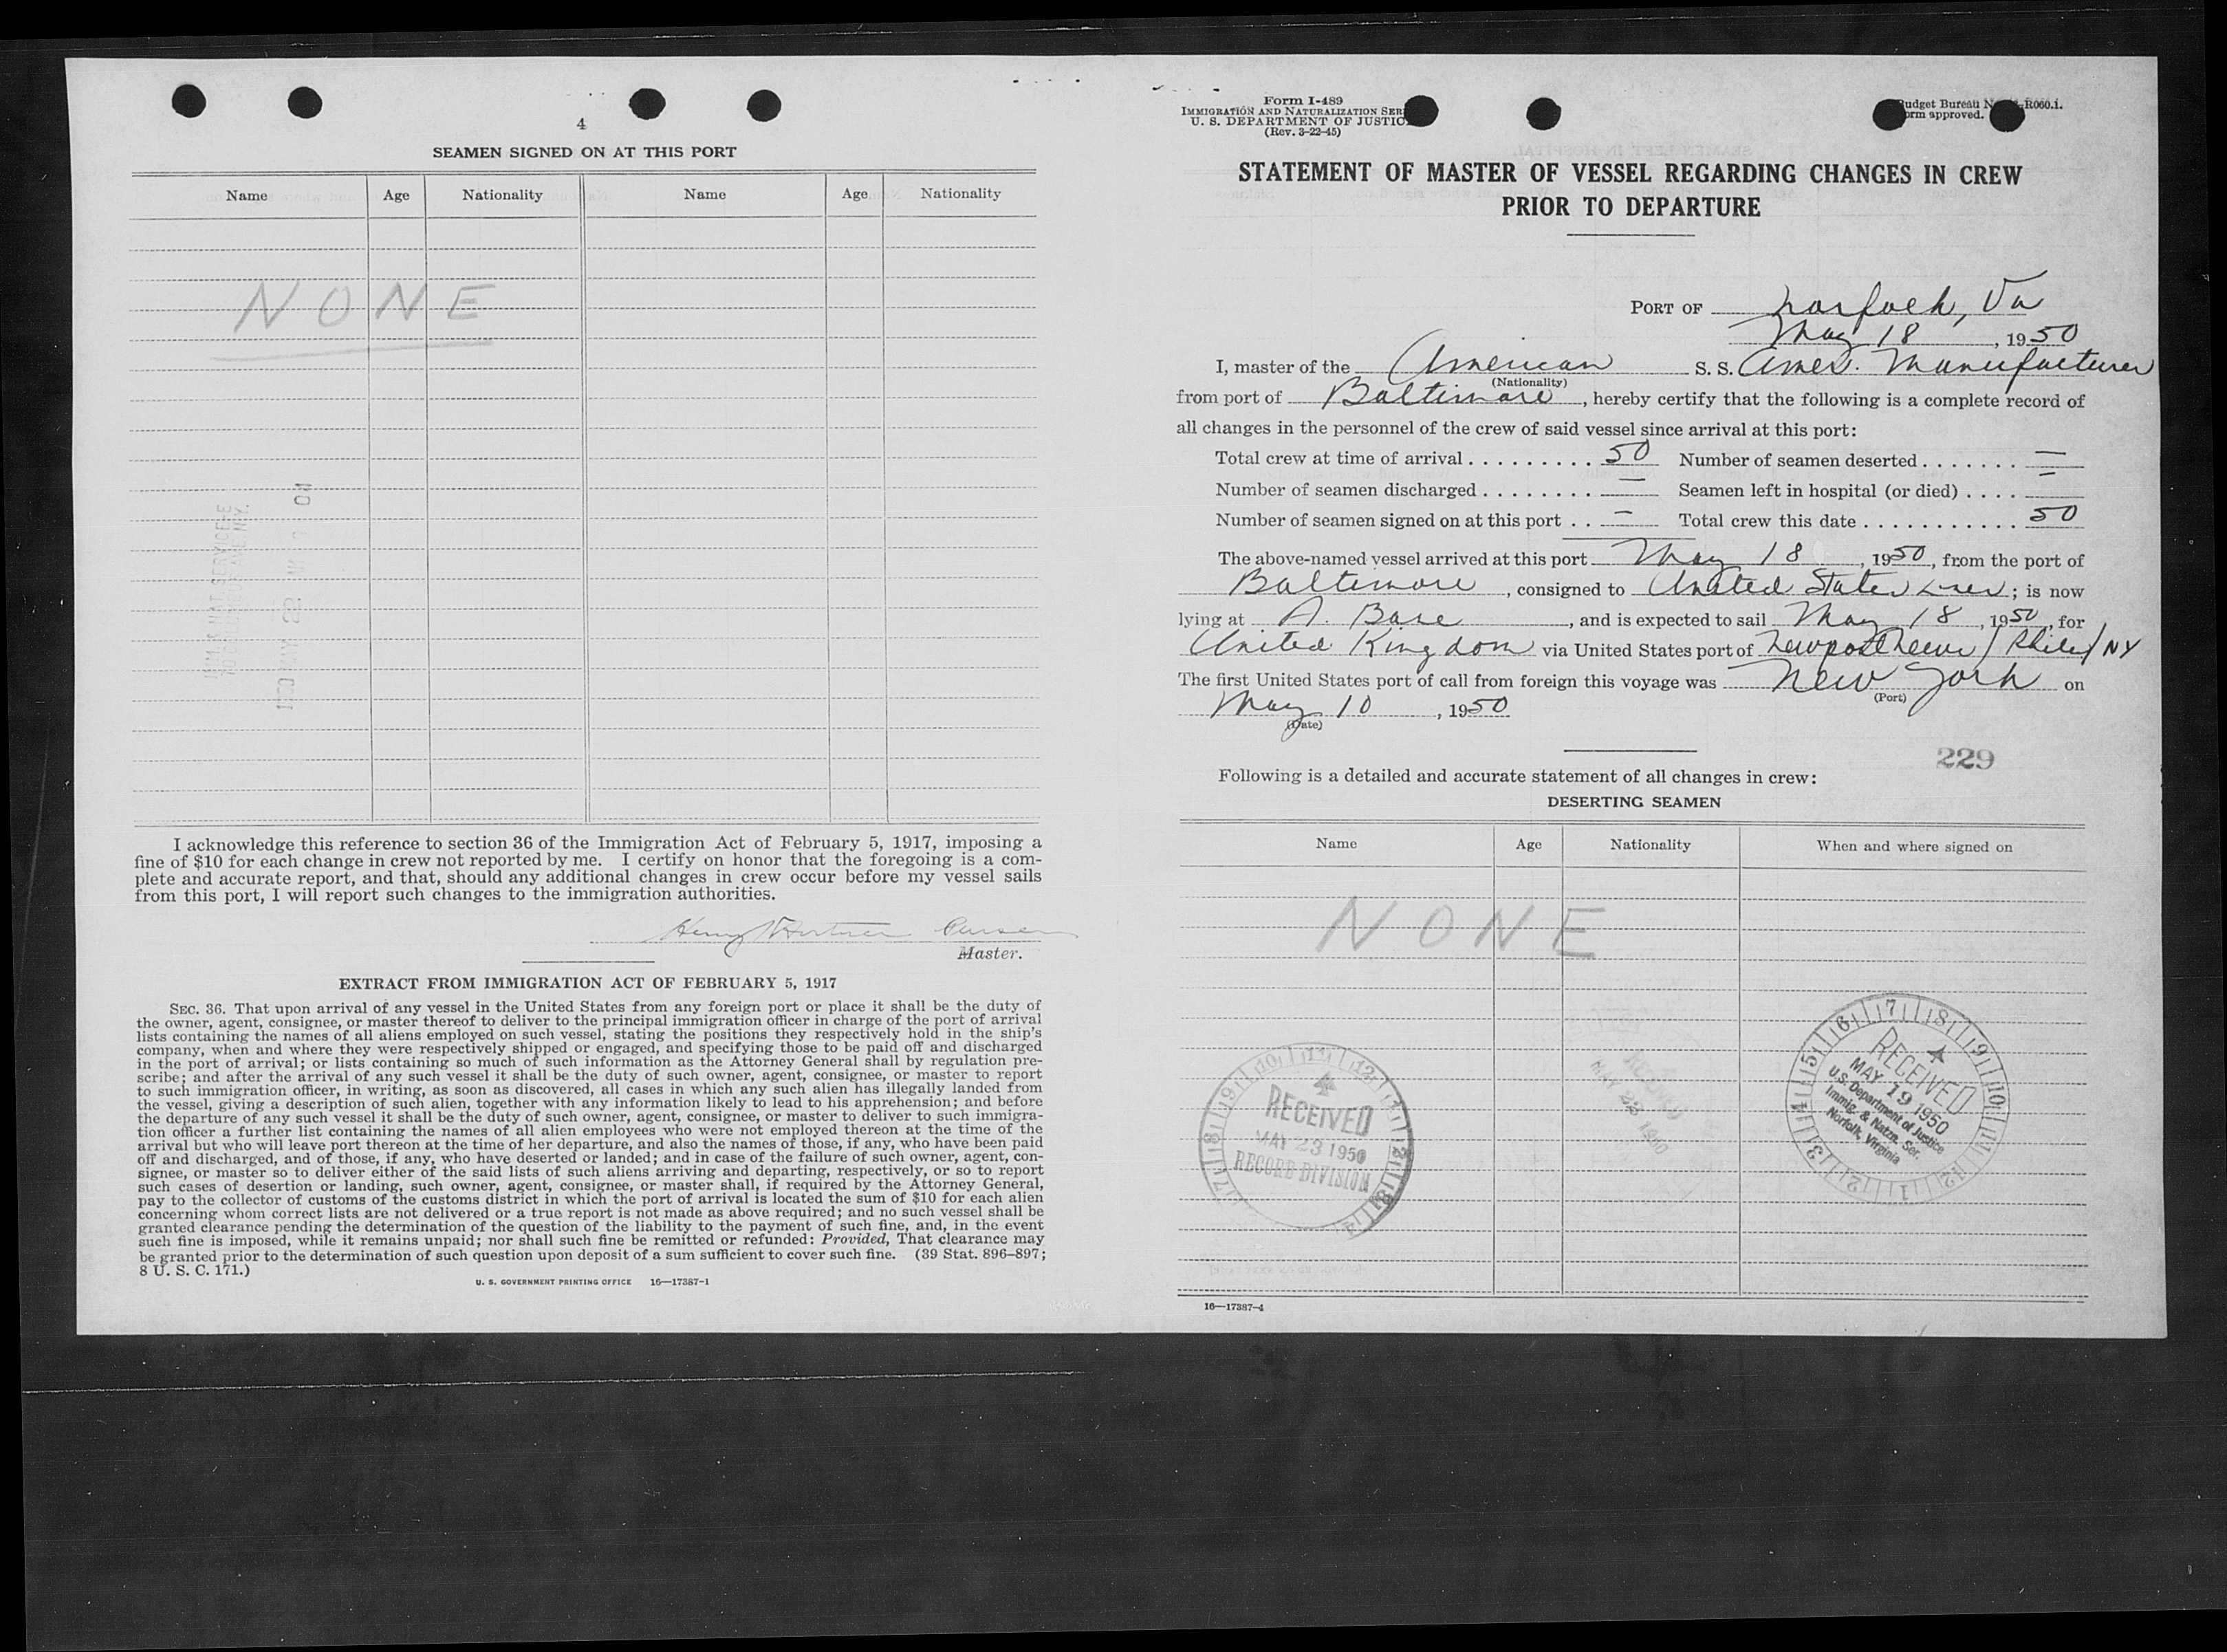 4
SEAMEN SIGNED ON AT THIS PORT
Name Age Nationality Name Age Nationality
NONE
I acknowledge this reference to section 36 of the Immigration Act of February 5, 1917, imposing a
fine of $10 for each change in crew not reported by me. I certify on honor that the foregoing is a com-
plete and accurate report, and that, should any additional changes in crew occur before my vessel sails
from this port, I will report such changes to the immigration authorities.
Henry
Master.
EXTRACT FROM IMMIGRATION ACT OF FEBRUARY 5, 1917
SEC. 36. That upon arrival of any vessel in the United States from any foreign port or place it shall be the duty of
the owner, agent, consignee, or master thereof to deliver to the principal immigration officer in charge of the port of arrival
lists containing the names of all aliens employed on such vessel, stating the positions they respectively hold in the ship's
company, when and where they were respectively shipped or engaged, and specifying those to be paid off and discharged
in the port of arrival; or lists containing so much of such information as the Attorney General shall by regulation pre-
scribe; and after the arrival of any such vessel it shall be the duty of such owner, agent, consignee, or master to report
to such immigration officer, in writing, as soon as discovered, all cases in which any such alien has illegally landed from
the vessel, giving a description of such alien, together with any information likely to lead to his apprehension; and before
the departure of any such vessel it shall be the duty of such owner, agent, consignee, or master to deliver to such immigra-
tion officer a further list containing the names of all alien employees who were not employed thereon at the time of the
arrival but who will leave port thereon at the time of her departure, and also the names of those, if any, who have been paid
off and discharged, and of those, if any, who have deserted or landed; and in case of the failure of such owner, agent, con-
signee, or master so to deliver either of the said lists of such aliens arriving and departing, respectively, or so to report
such cases of desertion or landing, such owner, agent, consignee, or master shall, if required by the Attorney General,
pay to the collector of customs of the customs district in which the port of arrival is located the sum of $10 for each alien
concerning whom correct lists are not delivered or a true report is not made as above required; and no such vessel shall be
granted clearance pending the determination of the question of the liability to the payment of such fine, and, in the event
such fine is imposed, while it remains unpaid; nor shall such fine be remitted or refunded: Provided, That clearance may
be granted prior to the determination of such question upon deposit of a sum sufficient to cover such fine. (39 Stat. 896–897;
8 U. S. C. 171.)
U. S. GOVERNMENT PRINTING OFFICE 16—17387-1
Form I-489
IMMIGRATION AND NATURALIZATION SER
U. S. DEPARTMENT OF JUSTIC
(Rev. 3-22-45)
udget Bureau N -R060.1.
orm approved.
STATEMENT OF MASTER OF VESSEL REGARDING CHANGES IN CREW
PRIOR TO DEPARTURE
PORT OF Norfolk, Va
May 18, 1950
I, master of the American S. S. Amer. Manufacturer
(Nationality)
from port of Baltimore, hereby certify that the following is a complete record of
all changes in the personnel of the crew of said vessel since arrival at this port:
Total crew at time of arrival ......... 50 Number of seamen deserted ....... —
Number of seamen discharged ........ — Seamen left in hospital (or died) .... —
Number of seamen signed on at this port .. — Total crew this date ............ 50
The above-named vessel arrived at this port May 18, 1950, from the port of
Baltimore, consigned to United States Lines; is now
lying at A. Base, and is expected to sail May 18, 1950, for
United Kingdom via United States port of Newport News / Phila / NY
The first United States port of call from foreign this voyage was New York on
(Port)
May 10, 1950
(Date)
229
Following is a detailed and accurate statement of all changes in crew:
DESERTING SEAMEN
Name Age Nationality When and where signed on
NONE
RECEIVED
MAY 23 1950
RECORD DIVISION
MAY 23 1950
RECEIVED
MAY 19 1950
U.S. Department of Justice
Immig. & Natzn. Ser.
Norfolk, Virginia
16—17387-4